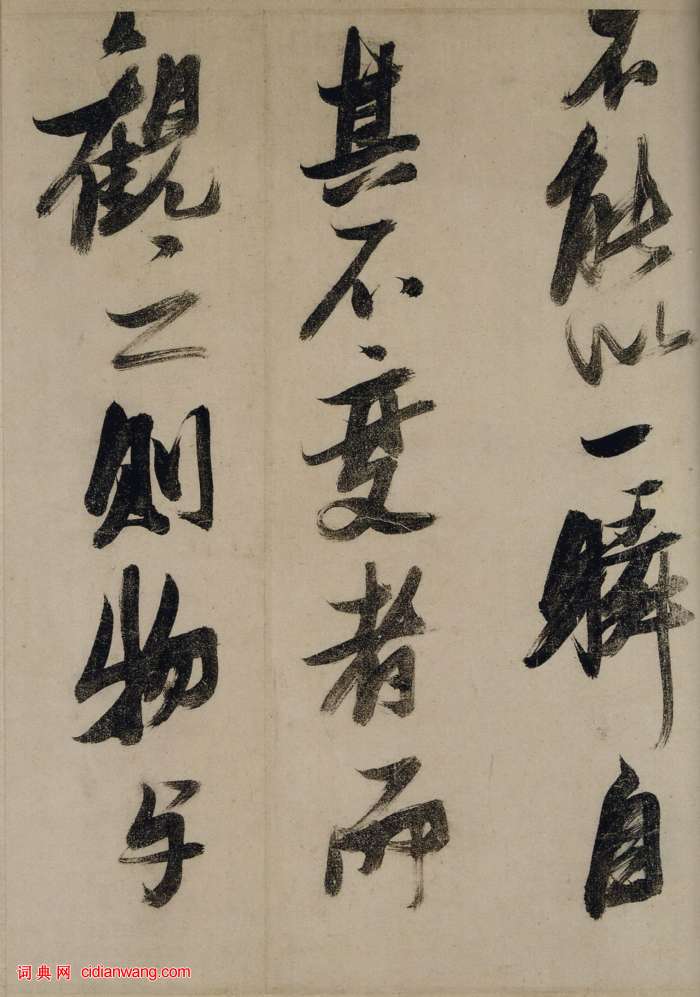 不能以一瞬自
其不變者而
觀之則物与
词典网 cidianwang.com